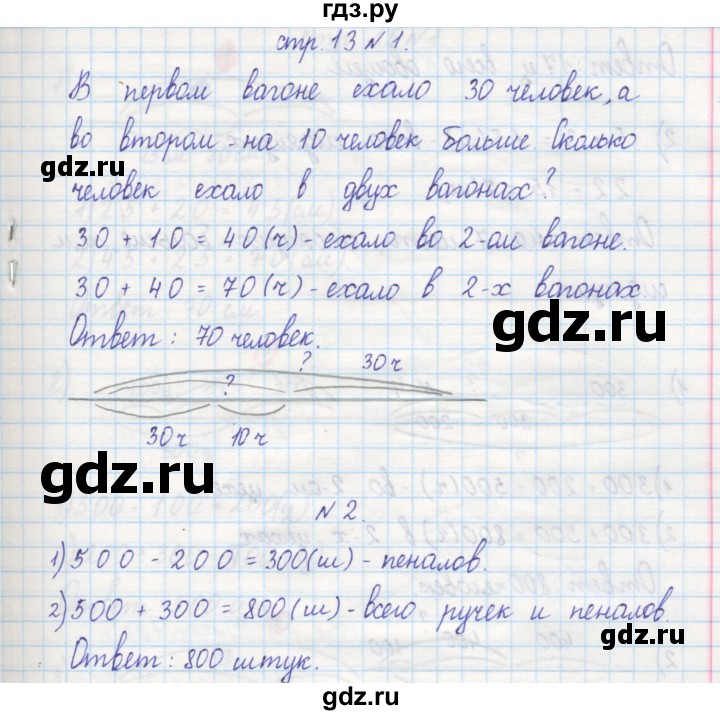 гдз.ру
стр. 13 № 1.
В первом вагоне ехало 30 человек, а
во втором - на 10 человек больше. Сколько
gdz.ru
человек ехало в двух вагонах?
30 + 10 = 40 (ч) - ехало во 2-ом вагоне.
30 + 40 = 70 (ч) - ехало в 2-х вагонах
gdz.ru
Ответ: 70 человек.
? 30ч
?
30ч 10ч
gdz.ru
№ 2.
1) 500 - 200 = 300 (ш) - пеналов.
2) 500 + 300 = 800 (ш) - всего ручек и пеналов.
gdz.ru
Ответ: 800 штук.
gdz.ru